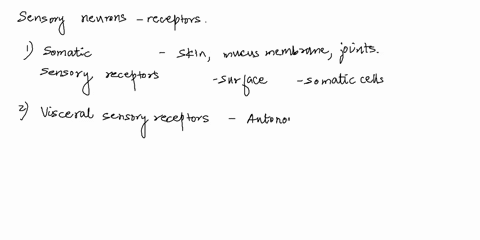 Sensory neurons - receptors.
1) Somatic - skin, mucus membrane, joints.
sensory receptors - surface - somatic cells
2) Visceral sensory receptors - Autono